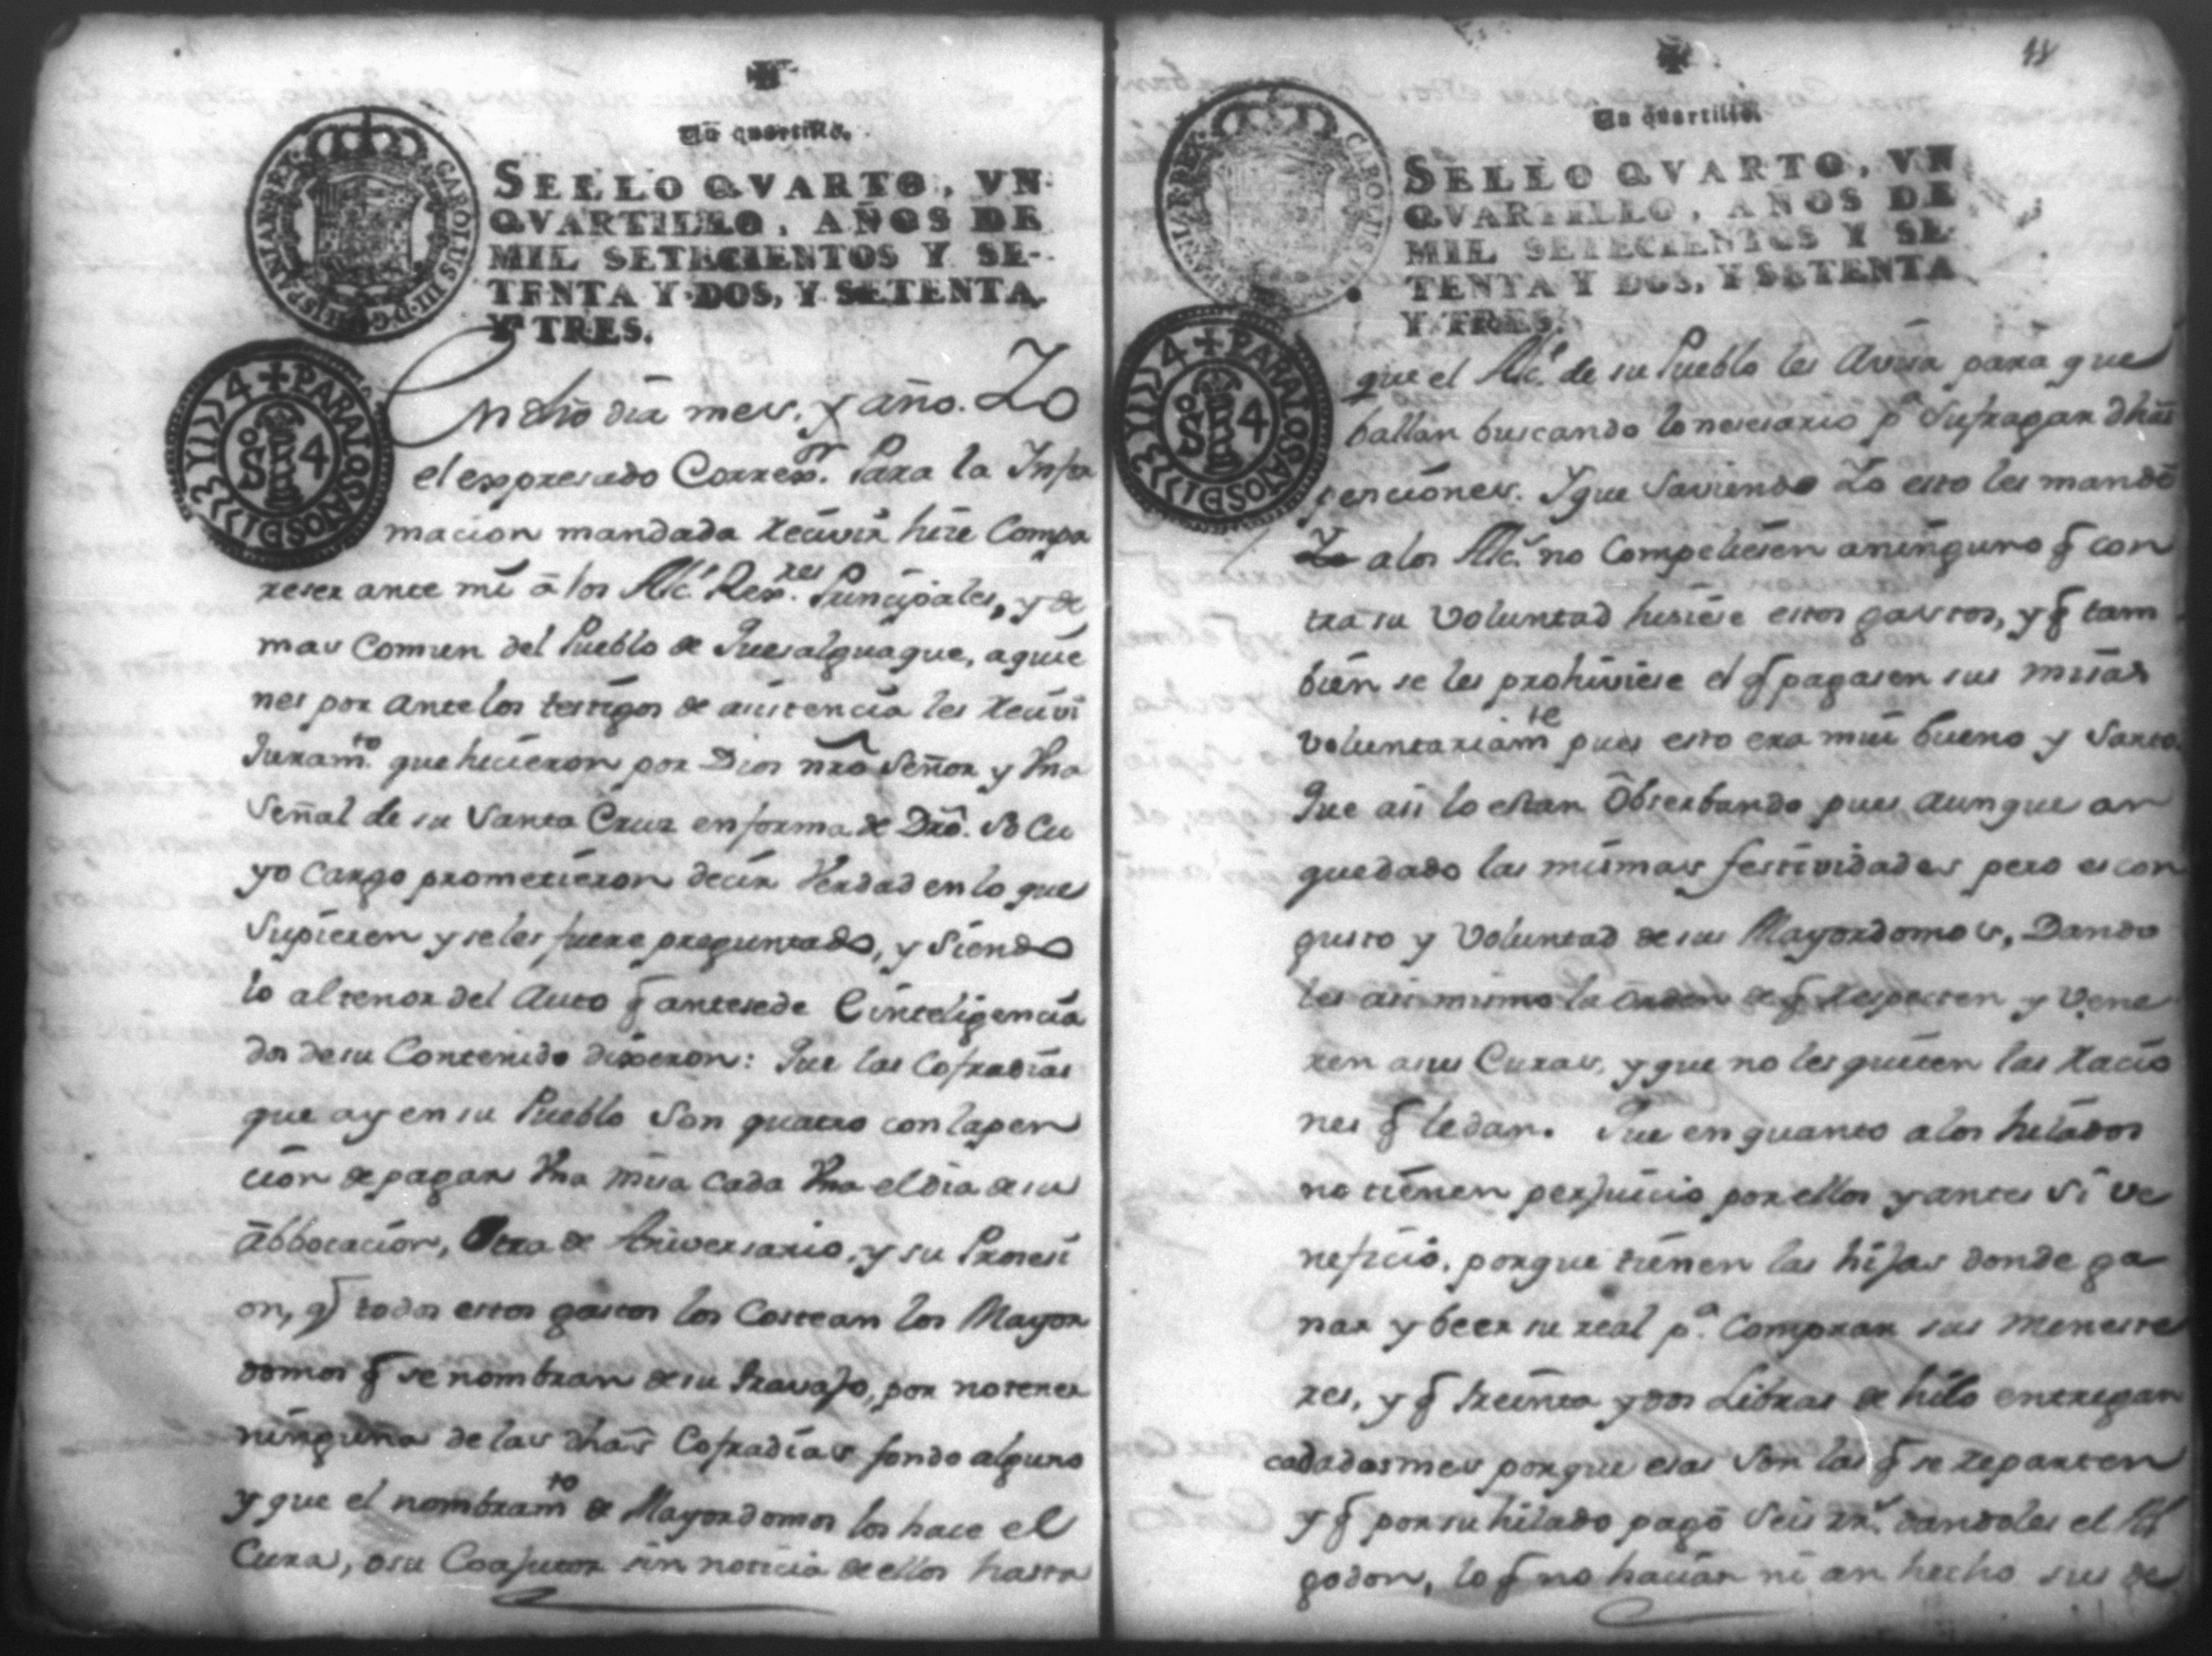 Un quartillo.
SELLO QVARTO, VN
QVARTILLO, AÑOS DE
MIL SETECIENTOS Y SE-
TENTA Y DOS, Y SETENTA
Y TRES.
CAROLUS III D. G. HISPANIAR. REX
+ PARA LOS AÑOS DI774
En dho dia mes, y año. Yo
el expresado Correxor. Para la Infor
macion mandada recivir hize Compa
reser ante mi â los Alcs. Rexres. Principales, y de
mas Comun del Pueblo de Quesalguaque, aquie
nes por ante los testigos de asistencia les recivi
Juramto. que hicieron por Dios nrô Señor y Vna
Señal de su Santa Cruz en forma de Drô. so Cu
yo cargo prometieron decir Verdad en lo que
Supieren y se les fuere preguntado, y Siendo
lo al tenor del Auto q̃ antesede E inteligencia
dos de su Contenido dixeron: Que las Cofradias
que ay en su Pueblo son quatro con la pen
cion de pagar Vna misa cada Vna el dia de su
abbocacion, Otra de Aniversario, y su Prosesi
on, q̃ todos estos gastos los Costean los Mayor
domos q̃ se nombran de su travajo, por no tener
ninguna de las dhas Cofradias fondo alguno
y que el nombramto de Mayordomos los hace el
Cura, o su Coajutor sin noticia de ellos hasta
48
Un quartillo.
SELLO QVARTO, VN
QVARTILLO, AÑOS DE
MIL SETECIENTOS Y SE-
TENTA Y DOS, Y SETENTA
Y TRES.
CAROLUS III D. G. HISPANIAR. REX
+ PARA LOS AÑOS DI774
que el Alce. de su Pueblo les Avisa para que
ballan buscando lo nesesario pa Sufragar dhas
penciones. Y que Saviendo Yo esto les mandô
a los Alcs. no Compeliesen a ninguno q̃ con
tra su Voluntad hisiese estos gastos, y q̃ tam
bien se les prohiviese el q̃ pagasen sus misas
voluntariamte pues esto era mui bueno y Santo
Que asi lo estan Obserbando pues aunque an
quedado las mismas festividades pero es con
gusto y Voluntad de sus Mayordomos, Dando
les asi mismo la orden de q̃ respecten y Vene
ren a sus Curas, y que no les quiten las racio
nes q̃ le dan. Que en quanto a los hilados
no tienen perjuicio por ellos y antes si ve
neficio, porque tienen las hijas donde ga
nar y beer su real pa. Comprar sus meneste
res, y q̃ treinta y dos Libras de hilo entregan
cada dos mes porque esas son las q̃ se reparten
y q̃ por su hilado pagô Seis rrs. dandoles el Al
godon, lo q̃ no hacian ni an hecho sus de